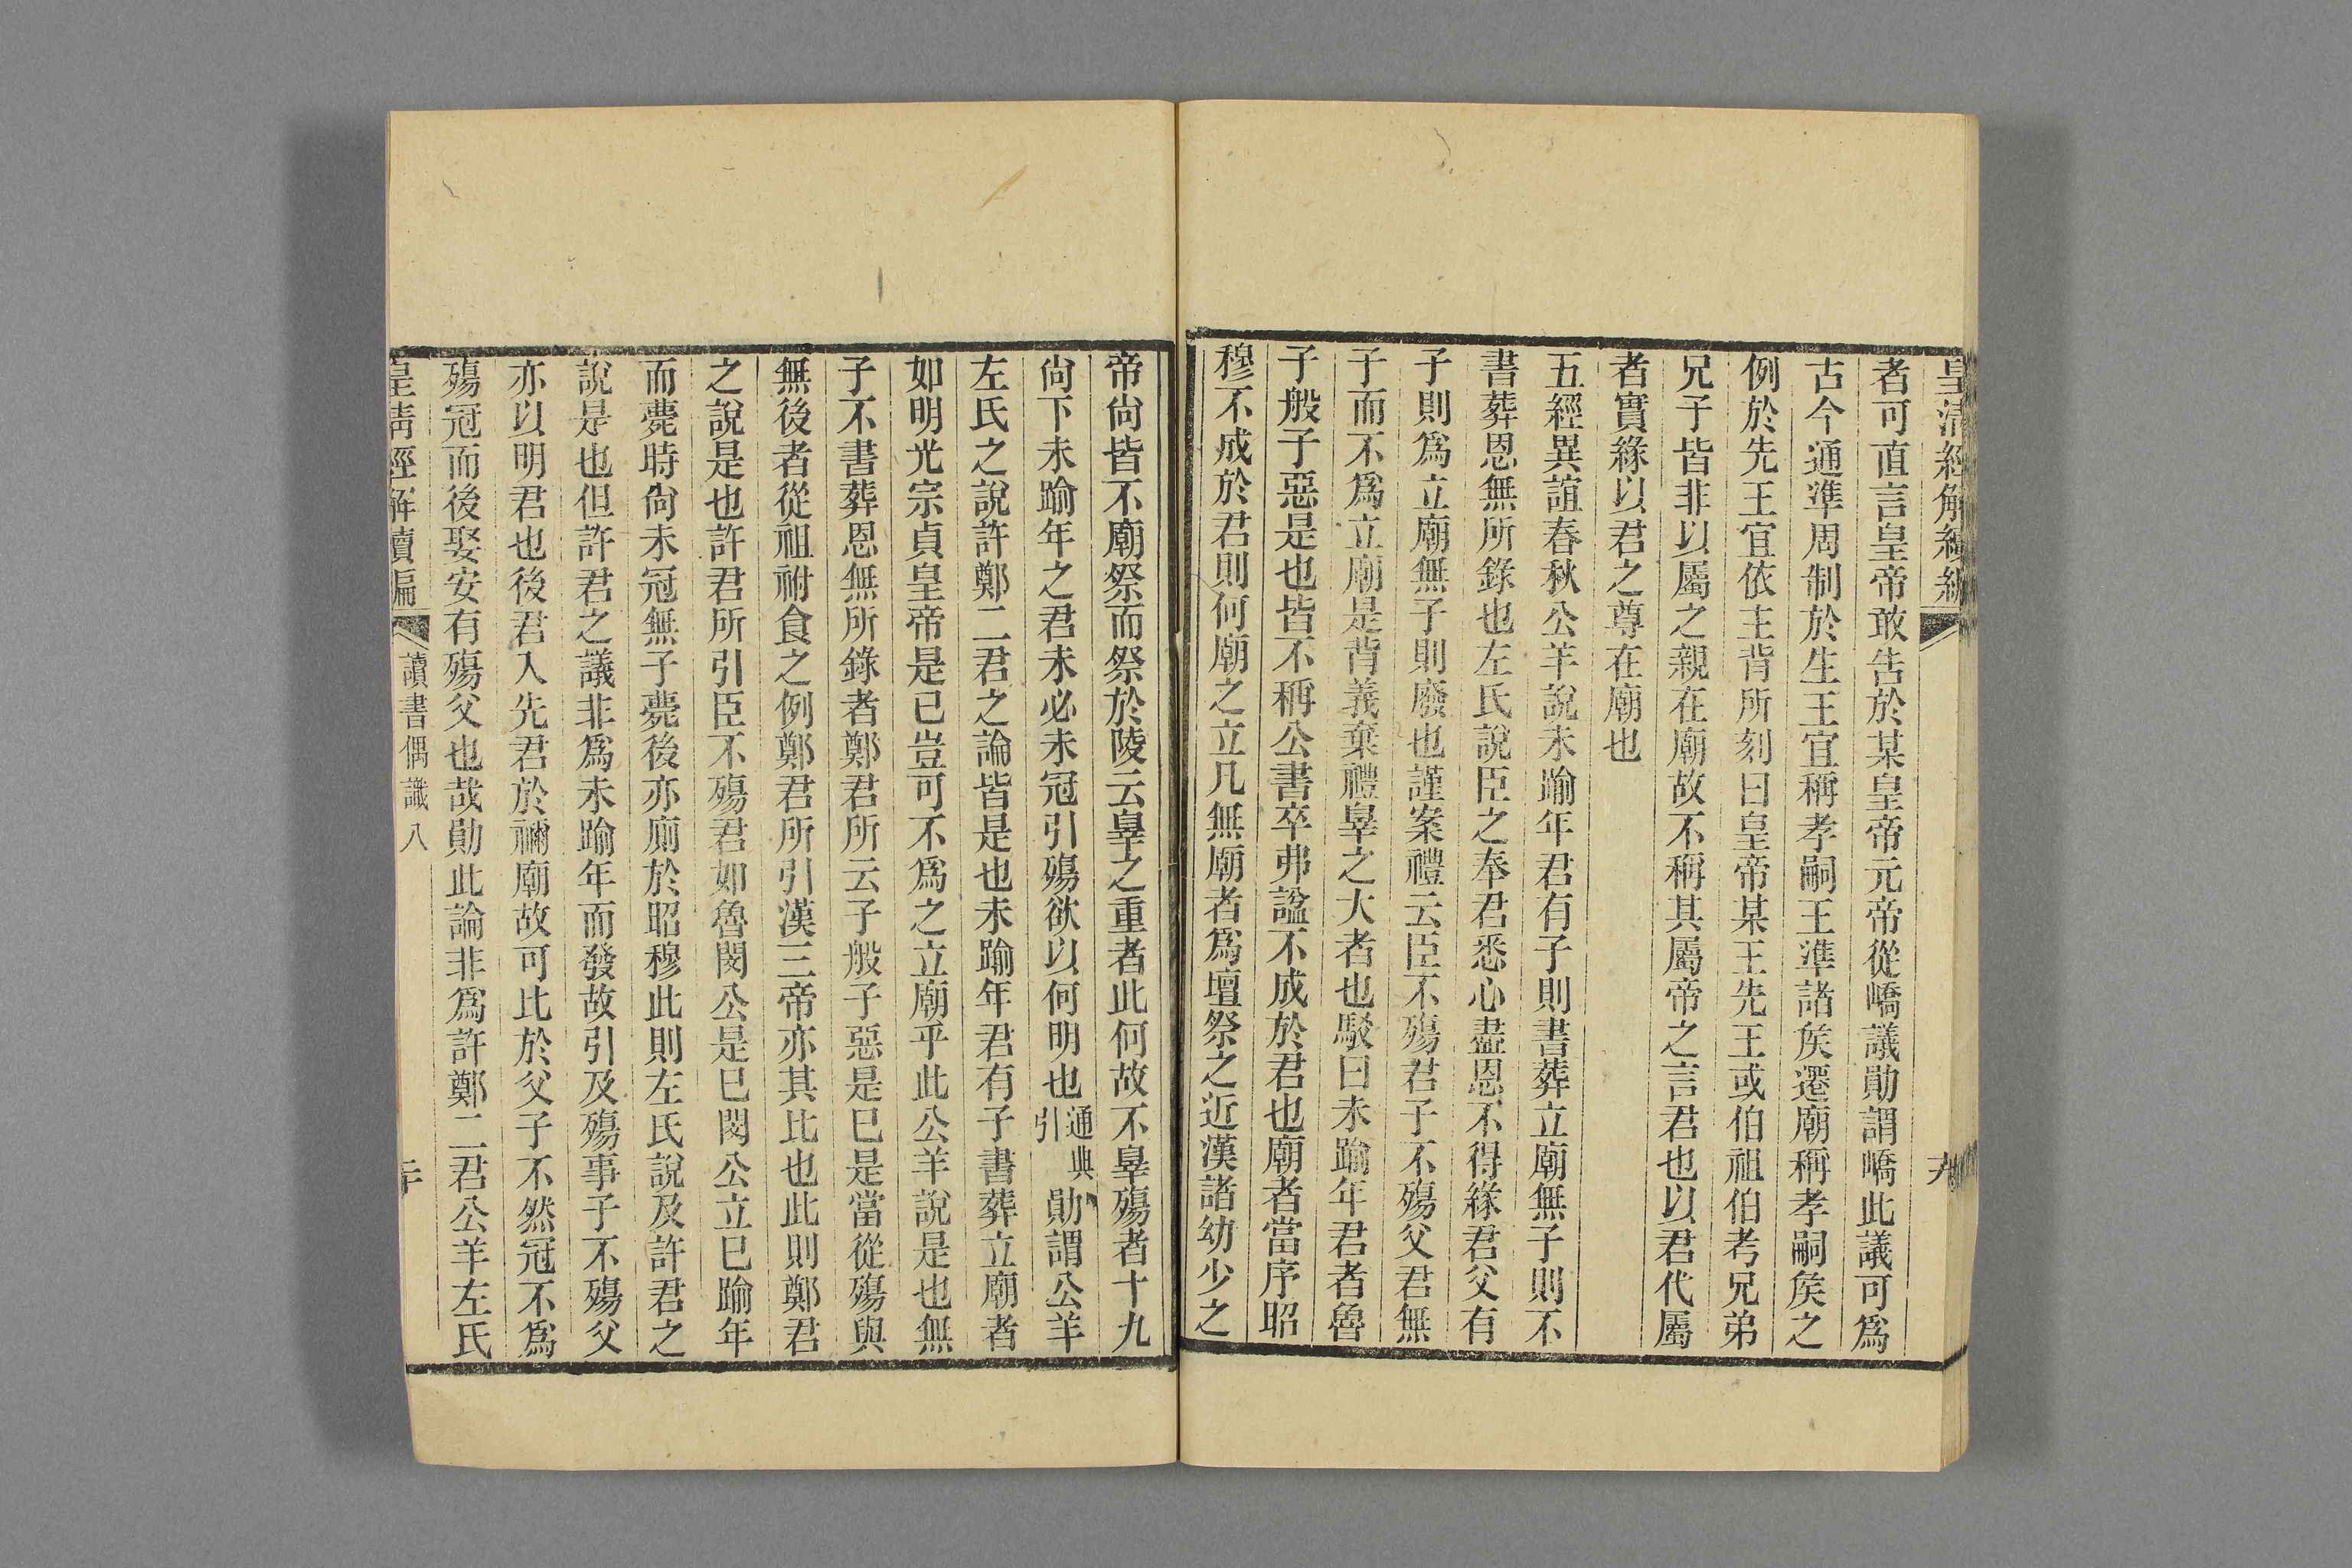 皇清經解續編
者可直言皇帝敢告於某皇帝元帝從嶠議勛謂嶠此議可爲
古今通準周制於生王宜稱孝嗣王準諸矦遷廟稱孝嗣矦之
例於先王宜依主背所刻曰皇帝某王先王或伯祖伯考兄弟
兄子皆非以屬之親在廟故不稱其屬帝之言君也以君代屬
者實緣以君之尊在廟也
五經異誼春秋公羊說未踰年君有子則書葬立廟無子則不
書葬恩無所錄也左氏說臣之奉君悉心盡恩不得緣君父有
子則爲立廟無子則廢也謹案禮云臣不殤君子不殤父君無
子而不爲立廟是背義棄禮辠之大者也駁曰未踰年君者魯
子般子惡是也皆不稱公書卒弗諡不成於君也廟者當序昭
穆不成於君則何廟之立凡無廟者爲壇祭之近漢諸幼少之
帝尙皆不廟祭而祭於陵云辠之重者此何故不辠殤者十九
尙下未踰年之君未必未冠引殤欲以何明也通典引勛謂公羊
左氏之說許鄭二君之論皆是也未踰年君有子書葬立廟者
如明光宗貞皇帝是已豈可不爲之立廟乎此公羊說是也無
子不書葬恩無所錄者鄭君所云子般子惡是已是當從殤與
無後者從祖祔食之例鄭君所引漢三帝亦其比也此則鄭君
之說是也許君所引臣不殤君如魯閔公是已閔公立已踰年
而薨時尙未冠無子薨後亦廟於昭穆此則左氏說及許君之
說是也但許君之議非爲未踰年而發故引及殤事子不殤父
亦以明君也後君入先君於禰廟故可比於父子不然冠不爲
殤冠而後娶安有殤父也哉勛此論非爲許鄭二君公羊左氏
皇淸經解續編
讀書偶識八